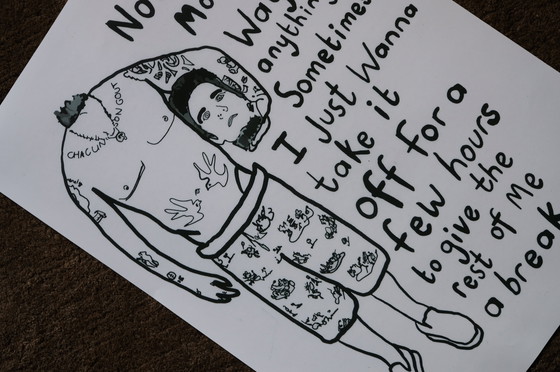 No
Mo
Way
anythin
Sometimes
I Just Wanna
take it
off for a
few hours
to give the
rest of Me
a break
CHACUN SON GOUT